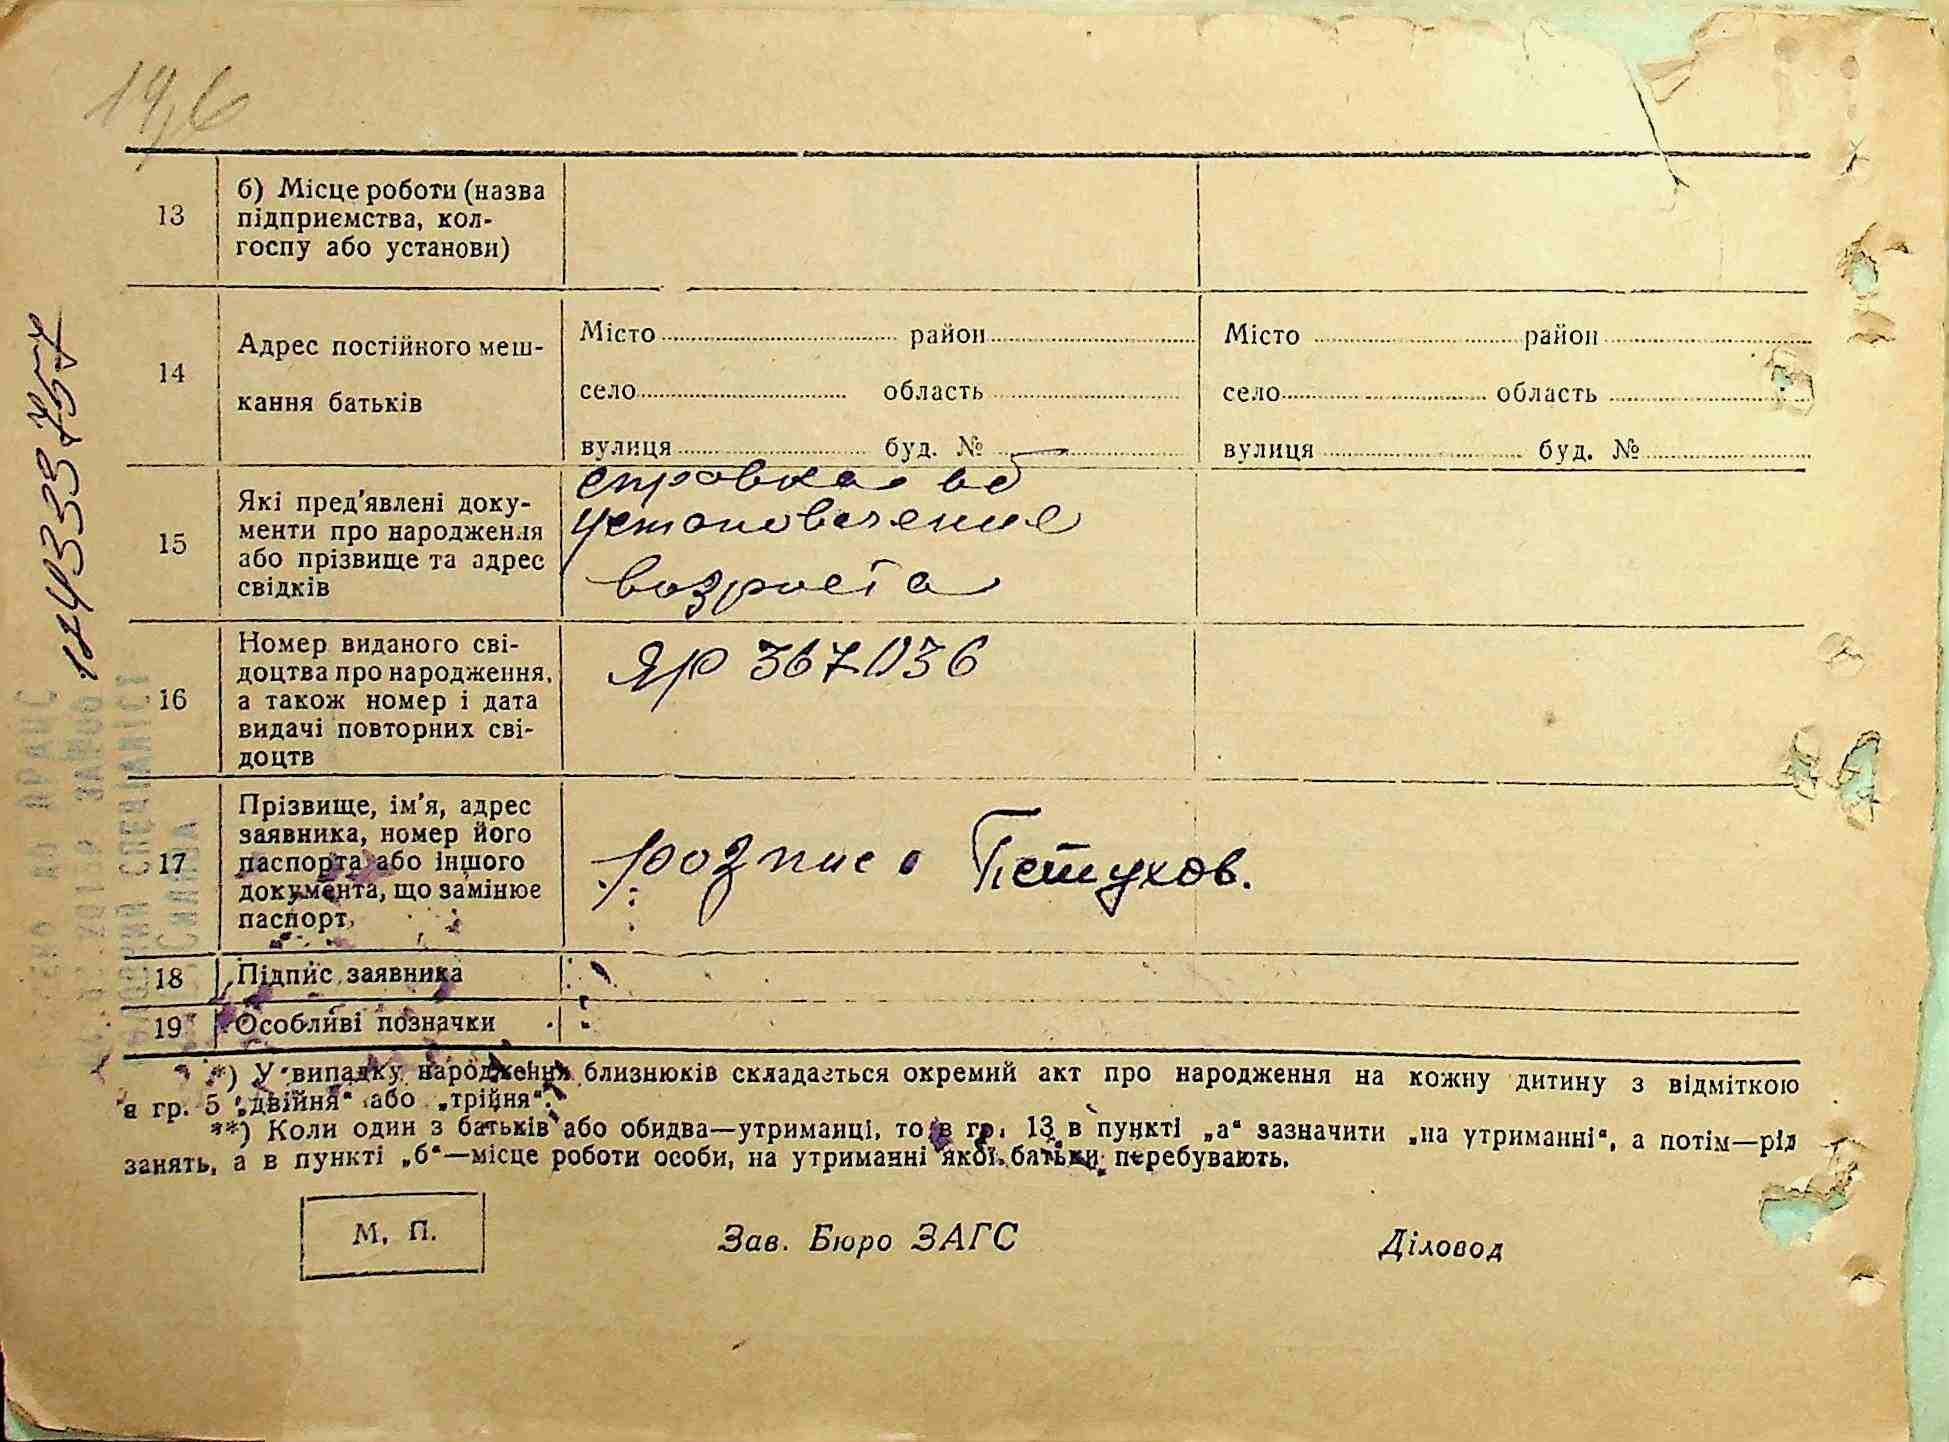 13
б) Місце роботи (назва
підприємства, кол-
госпу або установи)
14
Адрес постійного меш-
кання батьків
Місто район
село область
вулиця буд. №
Місто район
село область
вулиця буд. №
15
Які пред'явлені доку-
менти про народження
або прізвище та адрес
свідків
справка об
установлении
возраста
16
Номер виданого сві-
доцтва про народження,
а також номер і дата
видачі повторних сві-
доцтв
ЯР 367036
17
Прізвище, ім'я, адрес
заявника, номер його
паспорта або іншого
документа, що замінює
паспорт.
Петухов.
18
Підпис заявника
19
Особливі позначки
*) У випадку народження близнюків складається окремий акт про народження на кожну дитину з відміткою
в гр. 5 „двійня“ або „трійня“.
**) Коли один з батьків або обидва—утриманці, то в гр. 13 в пункті „а“ зазначити „на утриманні“, а потім—рід
занять, а в пункті „б“—місце роботи особи, на утриманні якої батьки перебувають.
М. П.
Зав. Бюро ЗАГС
Діловод